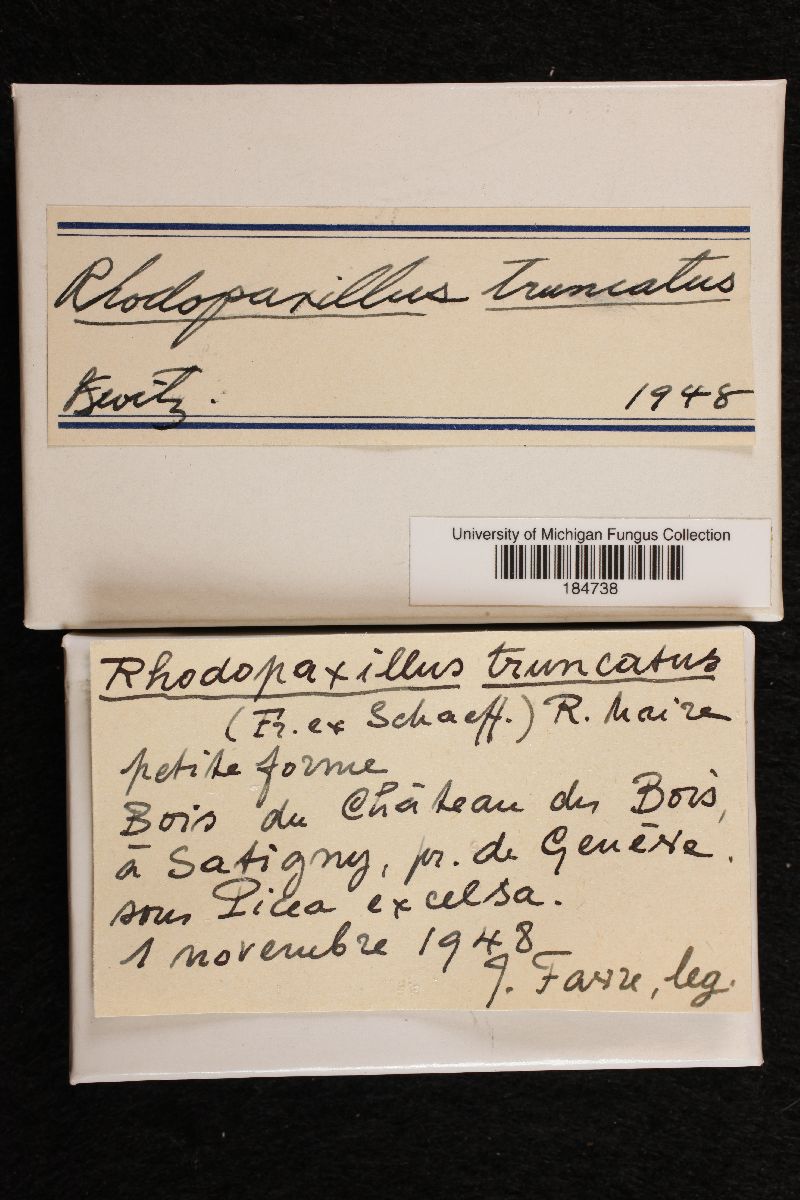 Rhodopaxillus truncatus
1948
University of Michigan Fungus Collection
184738
Rhodopaxillus truncatus
(Fr. ex Schaeff.) R. Maire
petite forme
Bois du Château du Bois,
à Satigny, pr. de Genève.
sous Picea excelsa.
1 novembre 1948
J. Favre, leg.